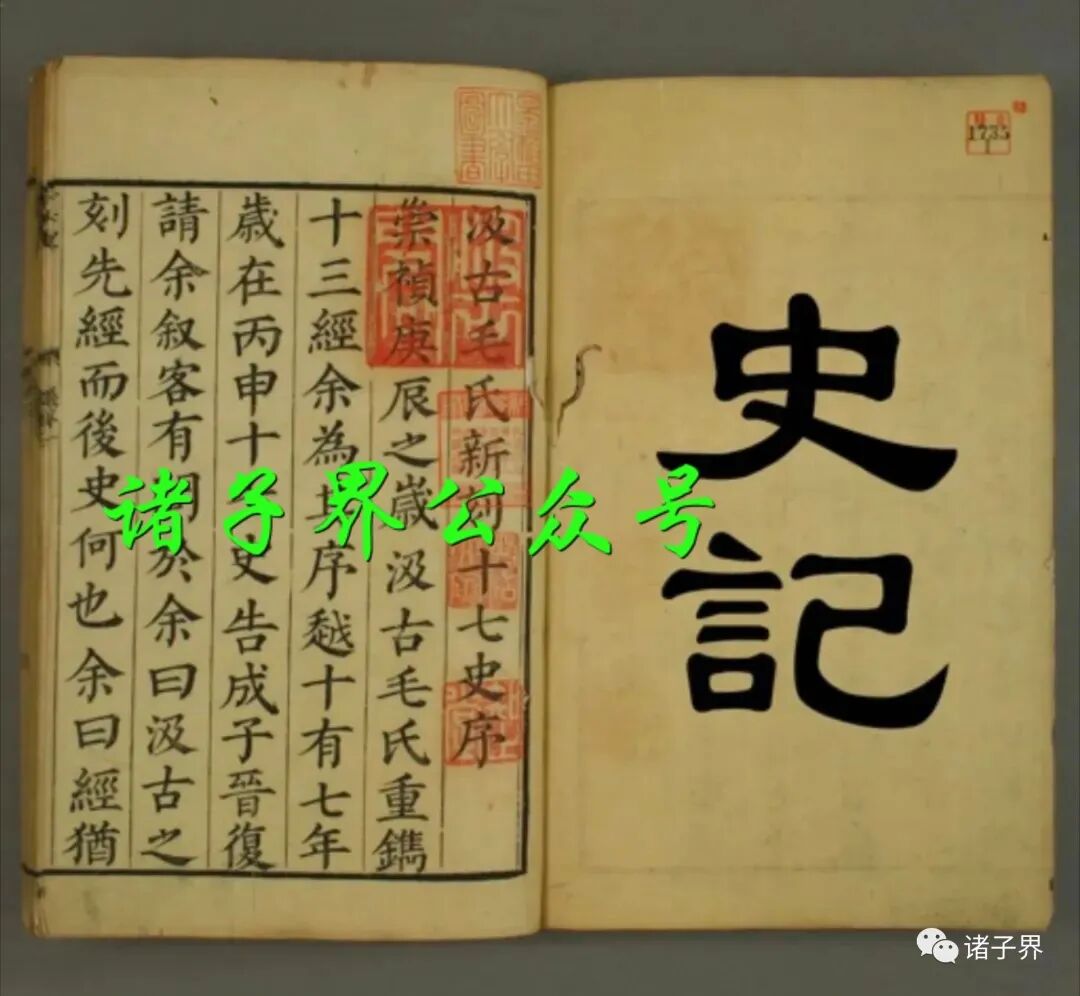 史記
1735
汲古毛氏新刻十七史序
崇禎庚辰之歲汲古毛氏重鐫
十三經余為其序越十有七年
歲在丙申十七史告成子晉復
請余叙客有問於余曰汲古之
刻先經而後史何也余曰經猶
诸子界公众号
诸子界